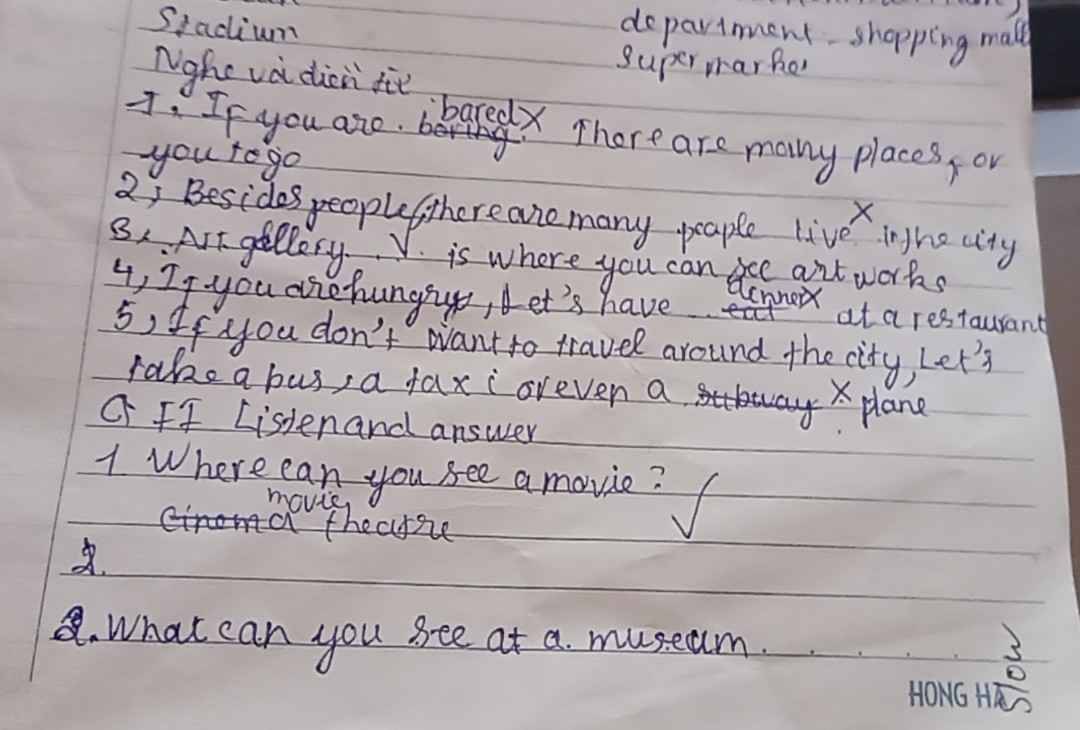 Stadium
department - shopping mall
supermarke
Nghe và điền từ
1, If you are . boring bored X There are many places for
you to go
2, Besides people, there are many people live X in the city
3, Art gallery √ is where you can see art works
4, If you are hungry, Let's have eat dinner X at a restaurant
5, If you don't want to travel around the city, Let's
take a bus, a taxi or even a subway X plane
II Listen and answer
1 Where can you see a movie? √
Cinema movie theatre
2.
2. What can you see at a museum . . . . .
slow
HONG HÀ